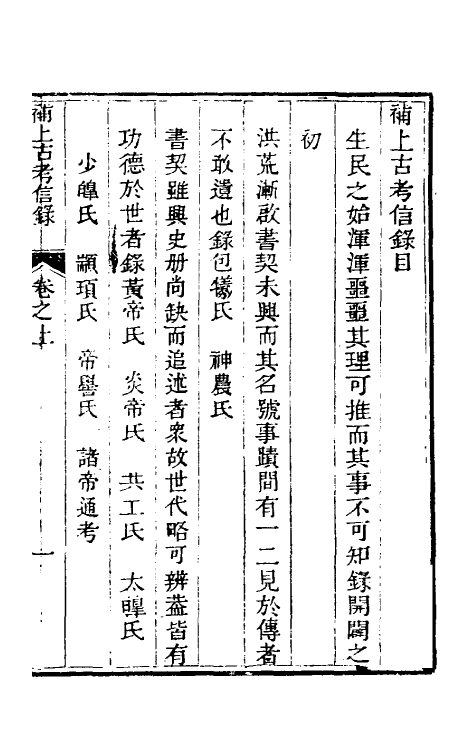 補上古考信錄目
生民之始渾渾噩噩其理可推而其事不可知錄開闢之
初
洪荒漸啟書契未興而其名號事蹟間有一二見於傳者
不敢遺也錄包犧氏　神農氏
書契雖興史册尚缺而追述者衆故世代略可辨葢皆有
功德於世者錄黃帝氏　炎帝氏　共工氏　太皡氏
少皡氏　顓頊氏　帝嚳氏　諸帝通考
補上古考信錄　卷之上　一